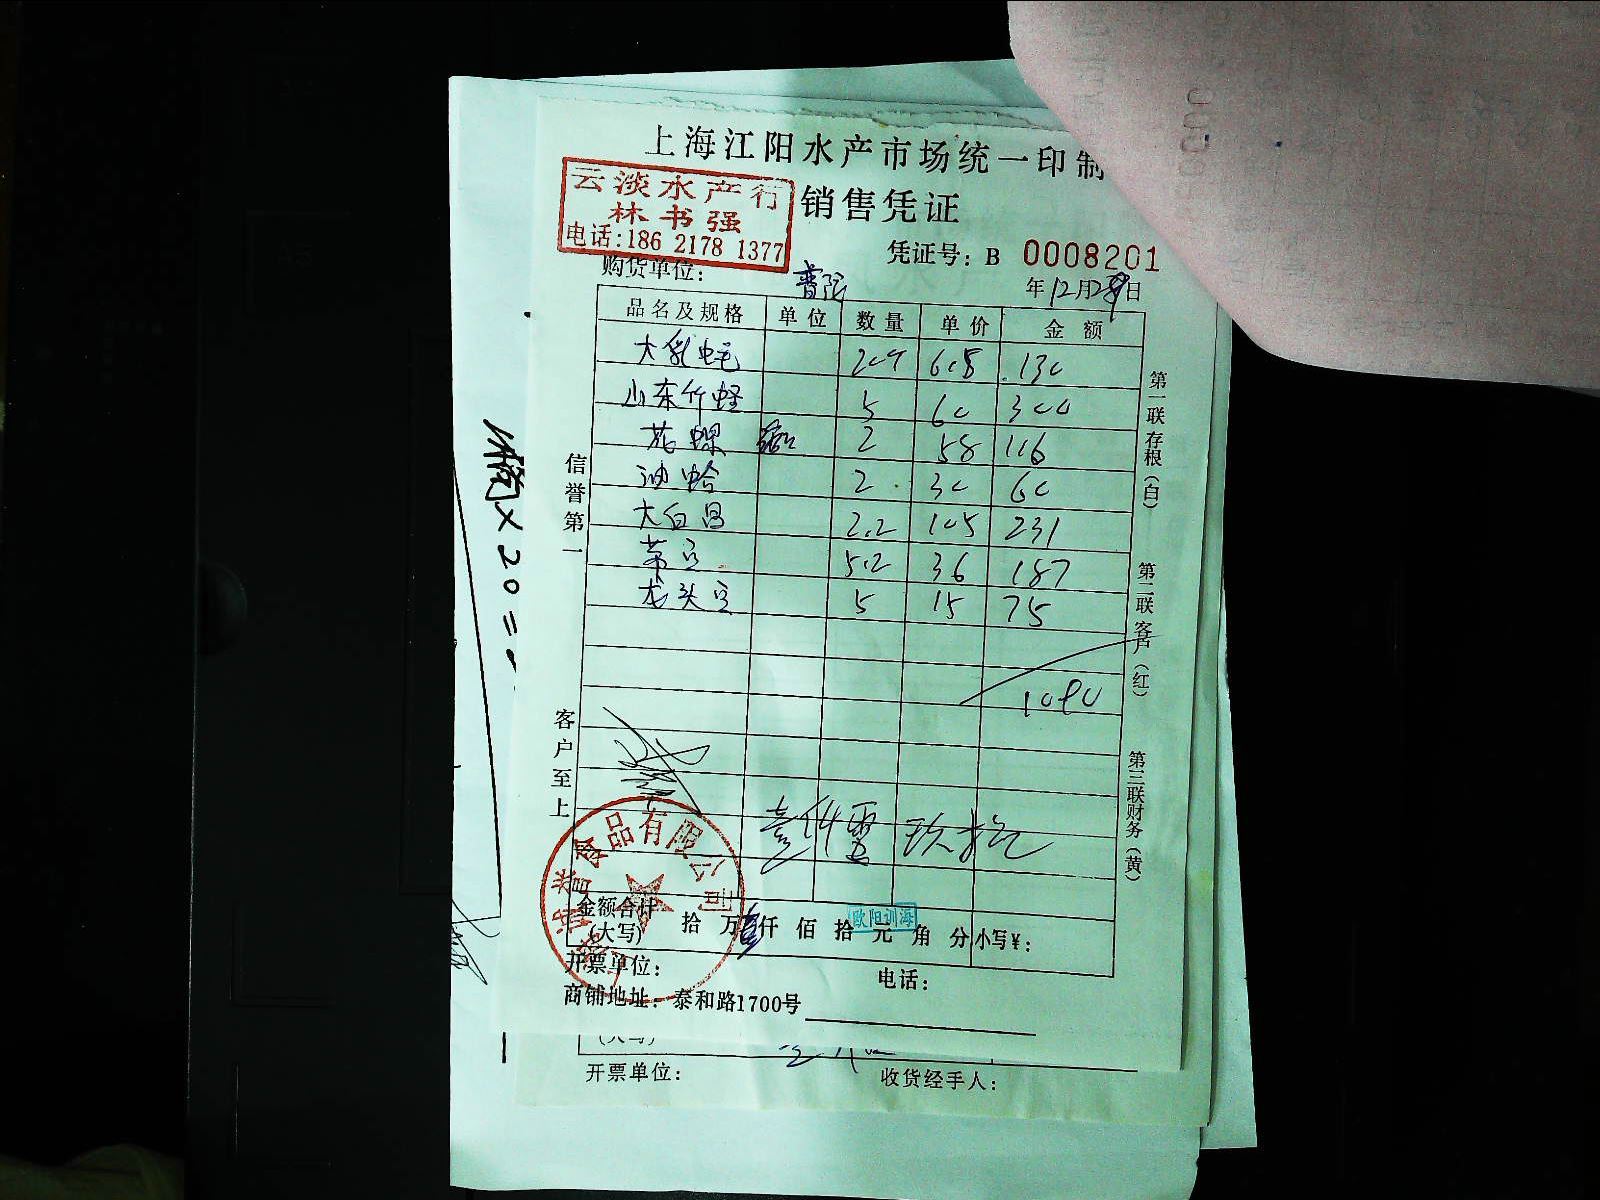 上海江阳水产市场统一印制
销售凭证
云淡水产行
林书强
电话:186 2178 1377
凭证号: B 0008201
购货单位: 普陀
年12月29日
品名及规格 单位 数量 单价 金额
大乳 130
山东竹蛏 5 60 300
花螺 2 58 116
油蛤 2 30 60
大白 2.2 105 231
5.2 36 187
龙头 5 15 75
1090
壹仟零玖拾元
金额合计
(大写) 拾 万 壹仟 佰 拾 元 角 分 小写¥:
欧阳训海
开票单位: 电话:
商铺地址: 泰和路1700号
信誉第一
客户至上
第一联存根(白)
第二联客户(红)
第三联财务(黄)
食品有限公司
(大写)
开票单位: 收货经手人:
×20=